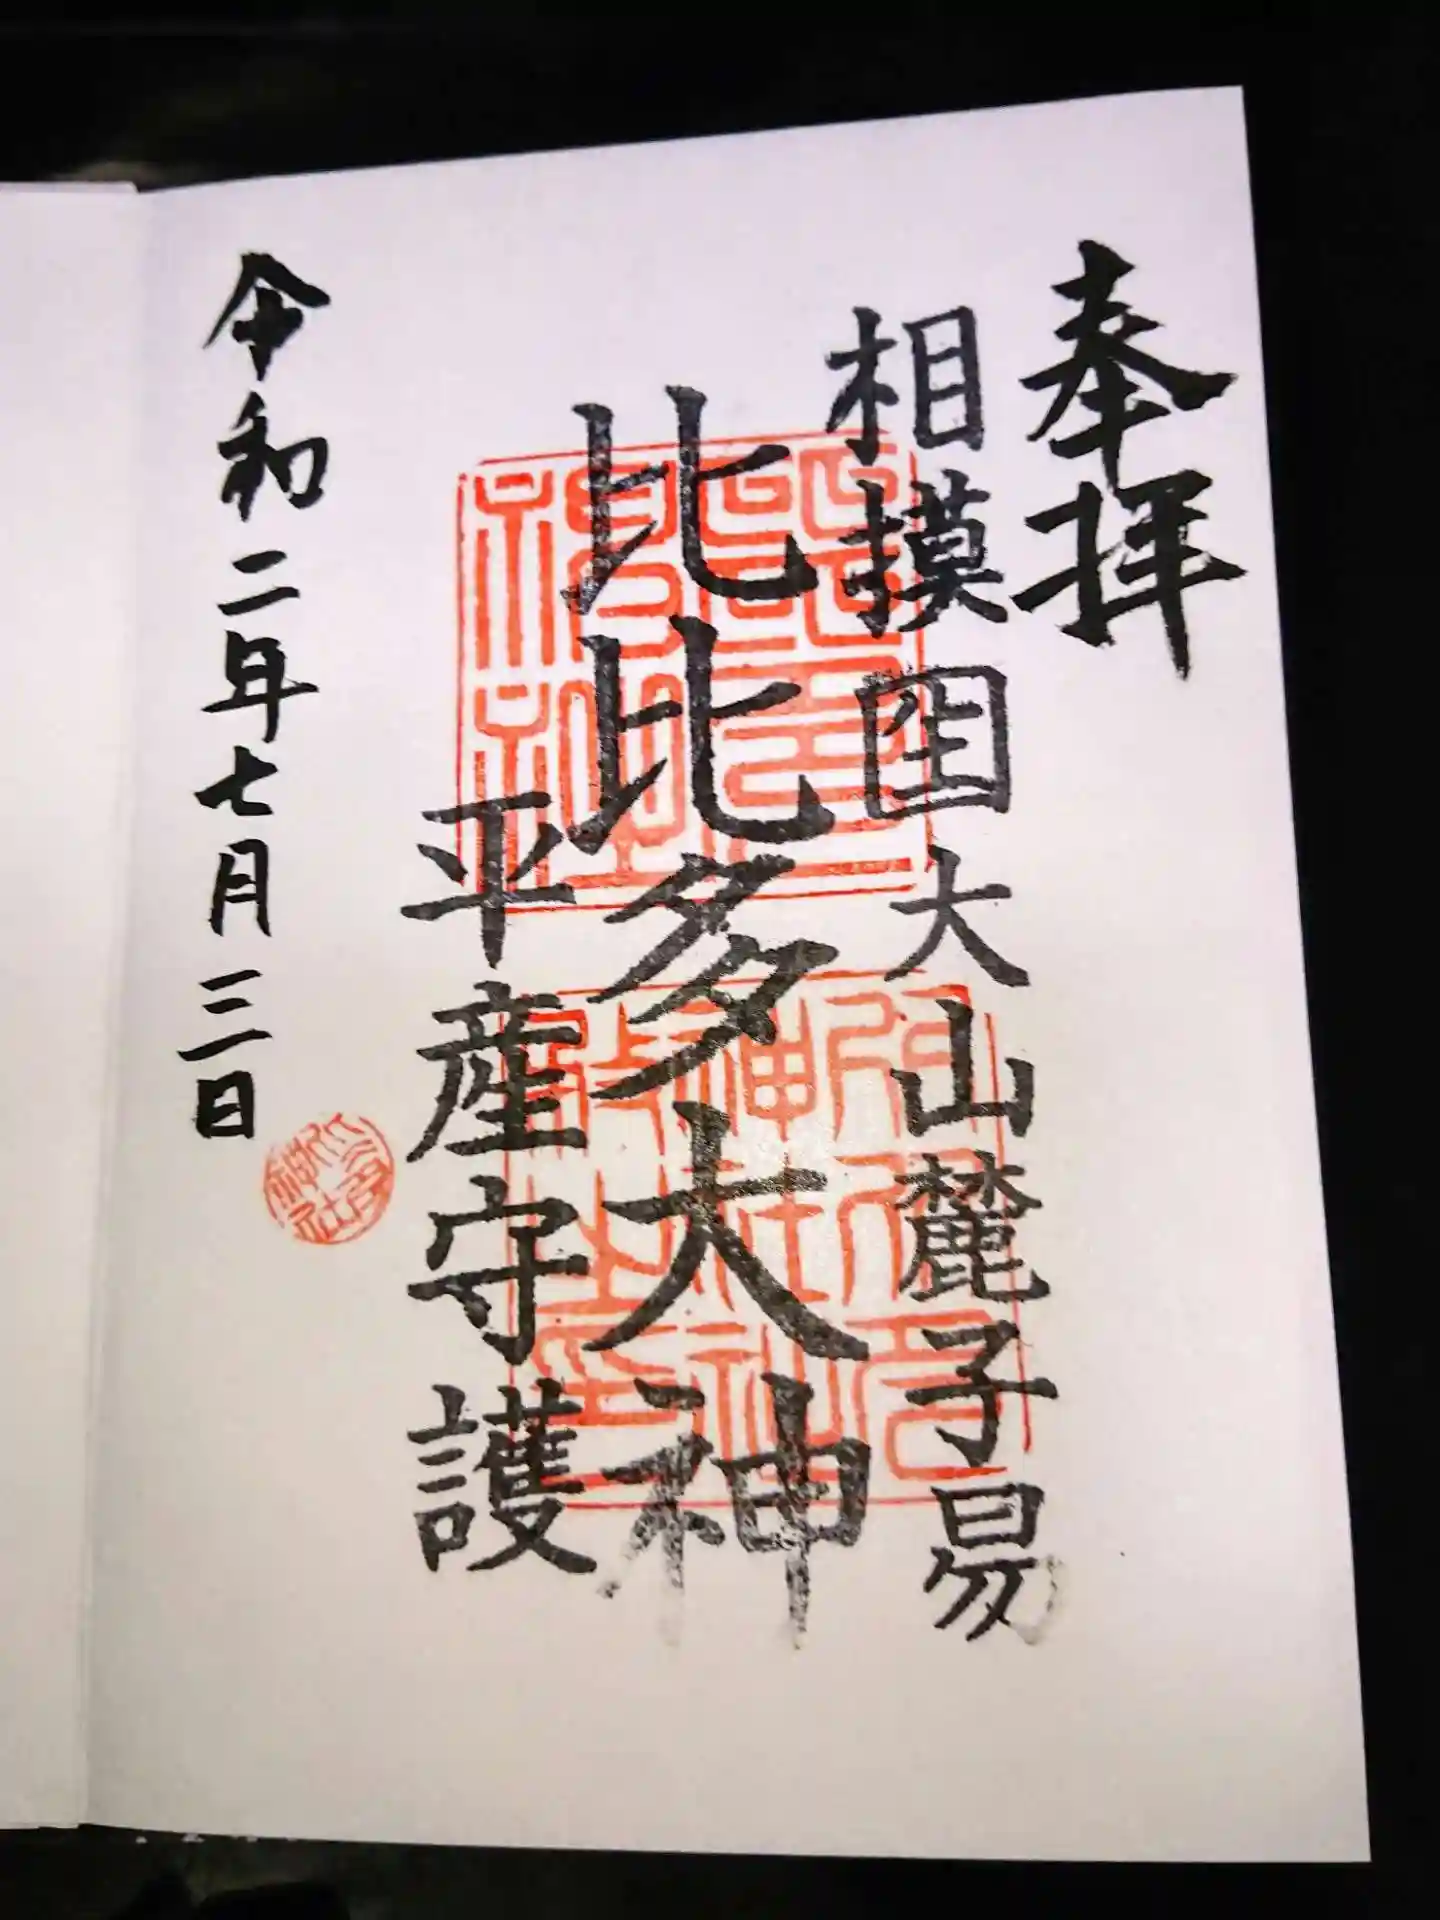 奉拝
相模国大山麓子易
比比多大神
平産守護
令和二年七月三日